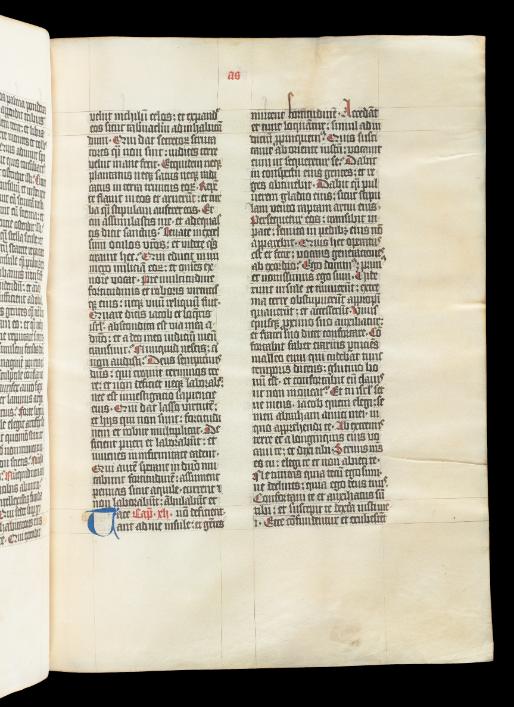 as
velut nichilū celos: et expandit
eos sicut tabernaclm ad inhabitan
dum. Qui dat secretoꝝ scruta
tores q̄si non sint: iudices terre
velut inane fecit. Et quidem neqꝫ
plantatus neqꝫ satus neqꝫ radi
catus in terra truncus eoꝝ. Repēte
flauit in eos et aruerūt: et tur
bo q̄si stipulam auferet eos. Et
cui assimilastis me et adequastis
dicit sanctus. Leuate in excel
sum oculos vrōs: et videte quis
creauit hec. Qui educit in nu
mero militiam eoꝝ: et omīes ex
noīe vocat. Pre multitudine
fortitudinis et roboris virtutis
qꝫ eius: neqꝫ vnū reliquū fuit.
Quare dicis iacob et loqueris
isrl: abscondita est via mea a
dno: et a deo meo iudiciū meū
transiuit. Nunquid nescis: aut
non audisti. Deus sempiternus
dns: qui creauit terminos ter
re: et non deficiet neqꝫ laborabit:
nec est inuestigatio sapiencie
eius. Qui dat lasso virtutē:
et hijs qui non sunt: fortitudi
nem et robur multiplicat. De
ficient pueri et laborabūt: et
iuuenes in infirmitate cadent.
Qui autē sperant in dno mu
tabunt fortitudinē: assument
pennas sicut aquile. current et
non laborabūt: ambulabūt et
Tace Cap. xli. nō deficient.
ant ad me insule: et gentes
mutent fortitudinē. Accedāt
et tunc loquantur: simul ad iu
diciū propinquem9. Quis susci
tauit ab oriente iustū: vocauit
eum ut sequeretur se. Dabit
in conspectu eius gentes: et re
ges obtinebit. Dabit q̄si pul
uerem gladio eius: sicut stipu
lam vento raptam arcui eius.
Persequetur eos: transibit in
pace: semita in pedibꝫ eius nō
apparebit. Quis hec operatus
est et fecit: vocans generaciones
ab exordio. Ego dominus: primus
et nouissimus ego sum. Vide
runt insule et timuerūt: extre
ma terre obstupuerūt appropi
quauerūt: et accesserūt. Vnus
quisqꝫ proximo suo auxiliatur:
et fratri suo dicit confortare. Cō
fortabit faber erarius percuciēs
malleo eum qui cudebat tunc
temporis dicens: glutino bo
nū est. et confortabit eū clauis
ne non moueatur. Et tu isrl ser
ue meus. iacob quem elegi: se
men abraham amici mei. in
quo apprehendi te. Ab extremis
terre et a longinquis eius vo
caui te: et dixi tibi. Seruus meus
es tu: elegi te et non abieci te.
Ne timeas quia tecū ego sum:
ne declines: quia ego deus tuus.
Confortaui te et auxiliatus sū
tibi: et suscepit te dextra iusti mei.
Ecce cōfundentur et erubescēt